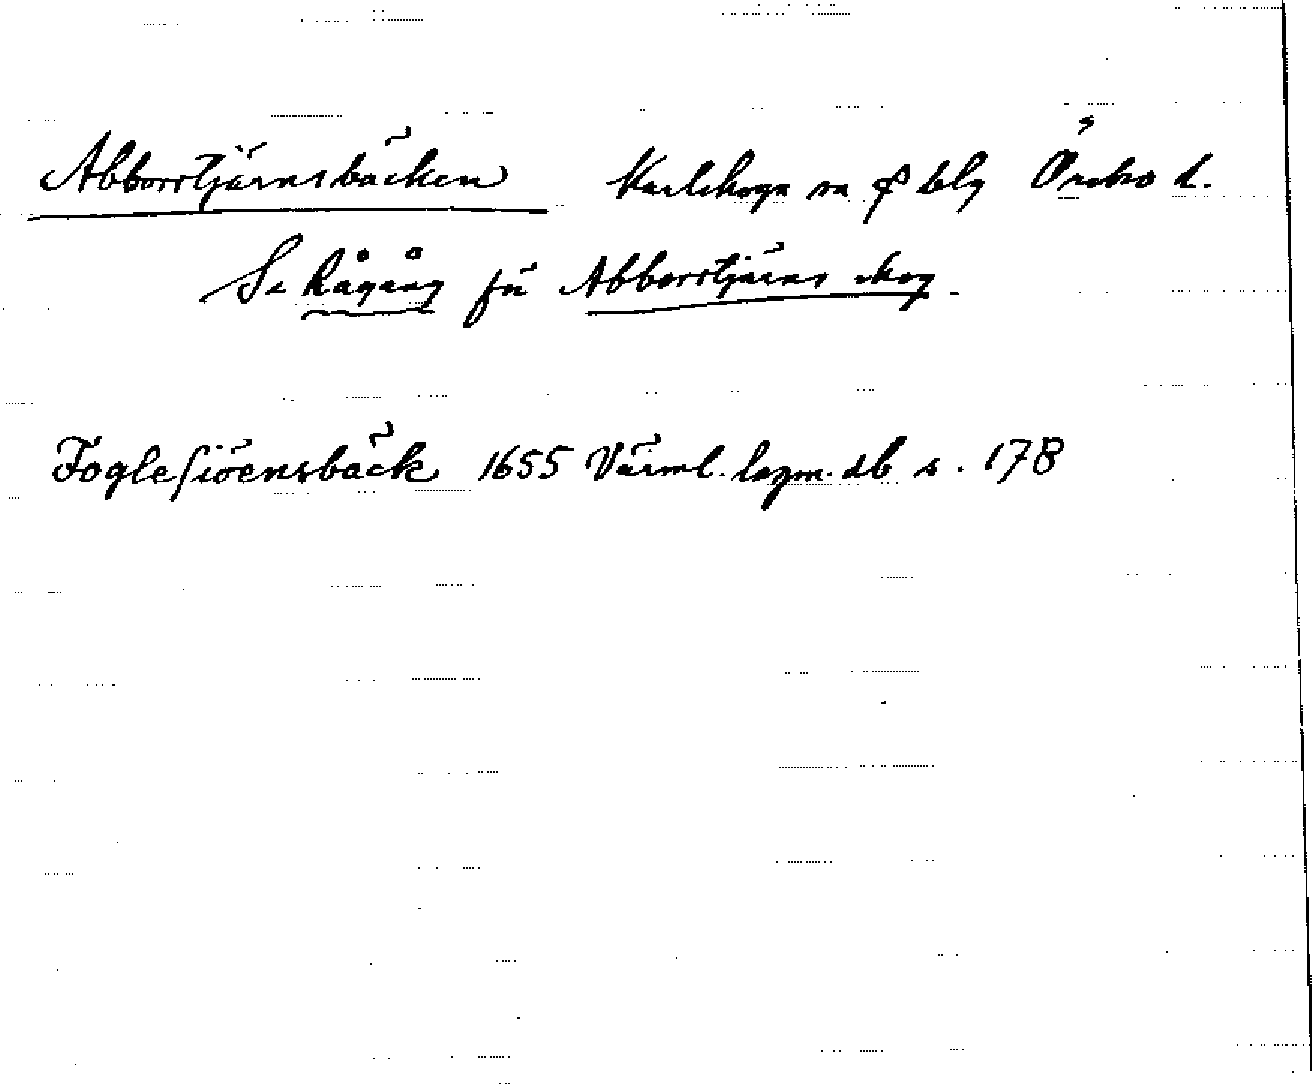 Abborrtjärnsbäcken Karlskoga sn o blg Örebro l.
Se Rågång för Abborrtjärns skog.
Foglesiöensbäck 1655 Värml. lagm. db s. 178